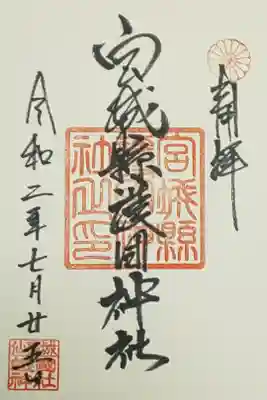 奉拝
宮城縣護國神社
宮城縣
神社之印
令和二年七月廿五日